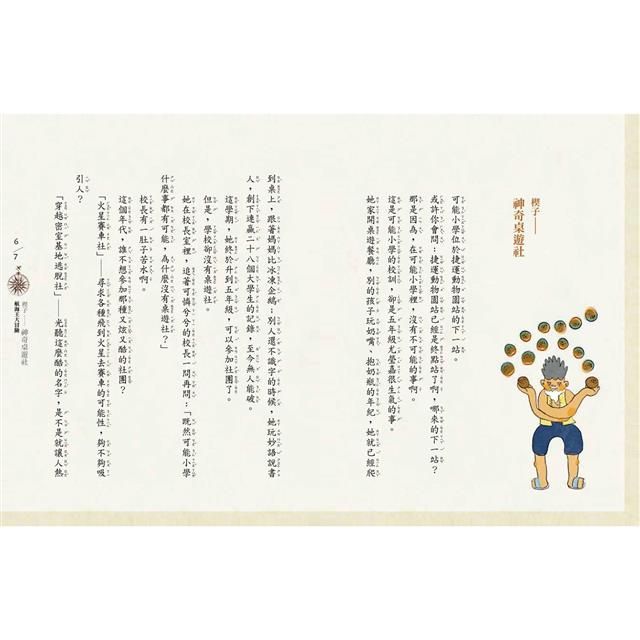 楔子——
神奇桌遊社
可能小學位於捷運動物園站的下一站。
或許你會問：捷運動物園站已經是終點站了啊，哪來的下一站？
那是因為，在可能小學裡，沒有不可能的事啊。
這是可能小學的校訓，卻是五年級尤瑩嘉很生氣的事。
她家開桌遊餐廳，別的孩子玩奶嘴、抱奶瓶的年紀，她就已經爬
到桌上，跟著媽媽比冰凍企鵝；別人還不識字的時候，她玩妙語說書
人，創下連贏二十八個大學生的記錄，至今無人能破。
這學期，她終於升到五年級，可以參加社團了。
但是，學校卻沒有桌遊社。
她在校長室裡，追著可憐兮兮的校長一問再問：「既然可能小學
什麼事都有可能，為什麼沒有桌遊社？」
校長有一肚子苦水啊。
這個年代，誰不想參加那種又炫又酷的社團？
「火星賽車社」——尋求各種飛到火星去賽車的可能性，夠不夠吸
引人？
「穿越密室基地逃脫社」——光聽這麼酷的名字，是不是就讓人熱
6/7
航海王大冒險
楔子——神奇桌遊社